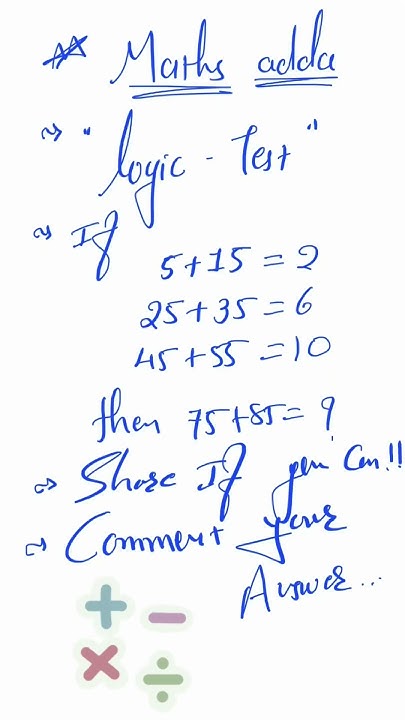 Maths adda
~> "logic - Test"
~> If
5+15 = 2
25+35 = 6
45+55 = 10
then 75+85 = ?
~> Share If you Can!!
~> Comment your
Answer...
+ −
× ÷